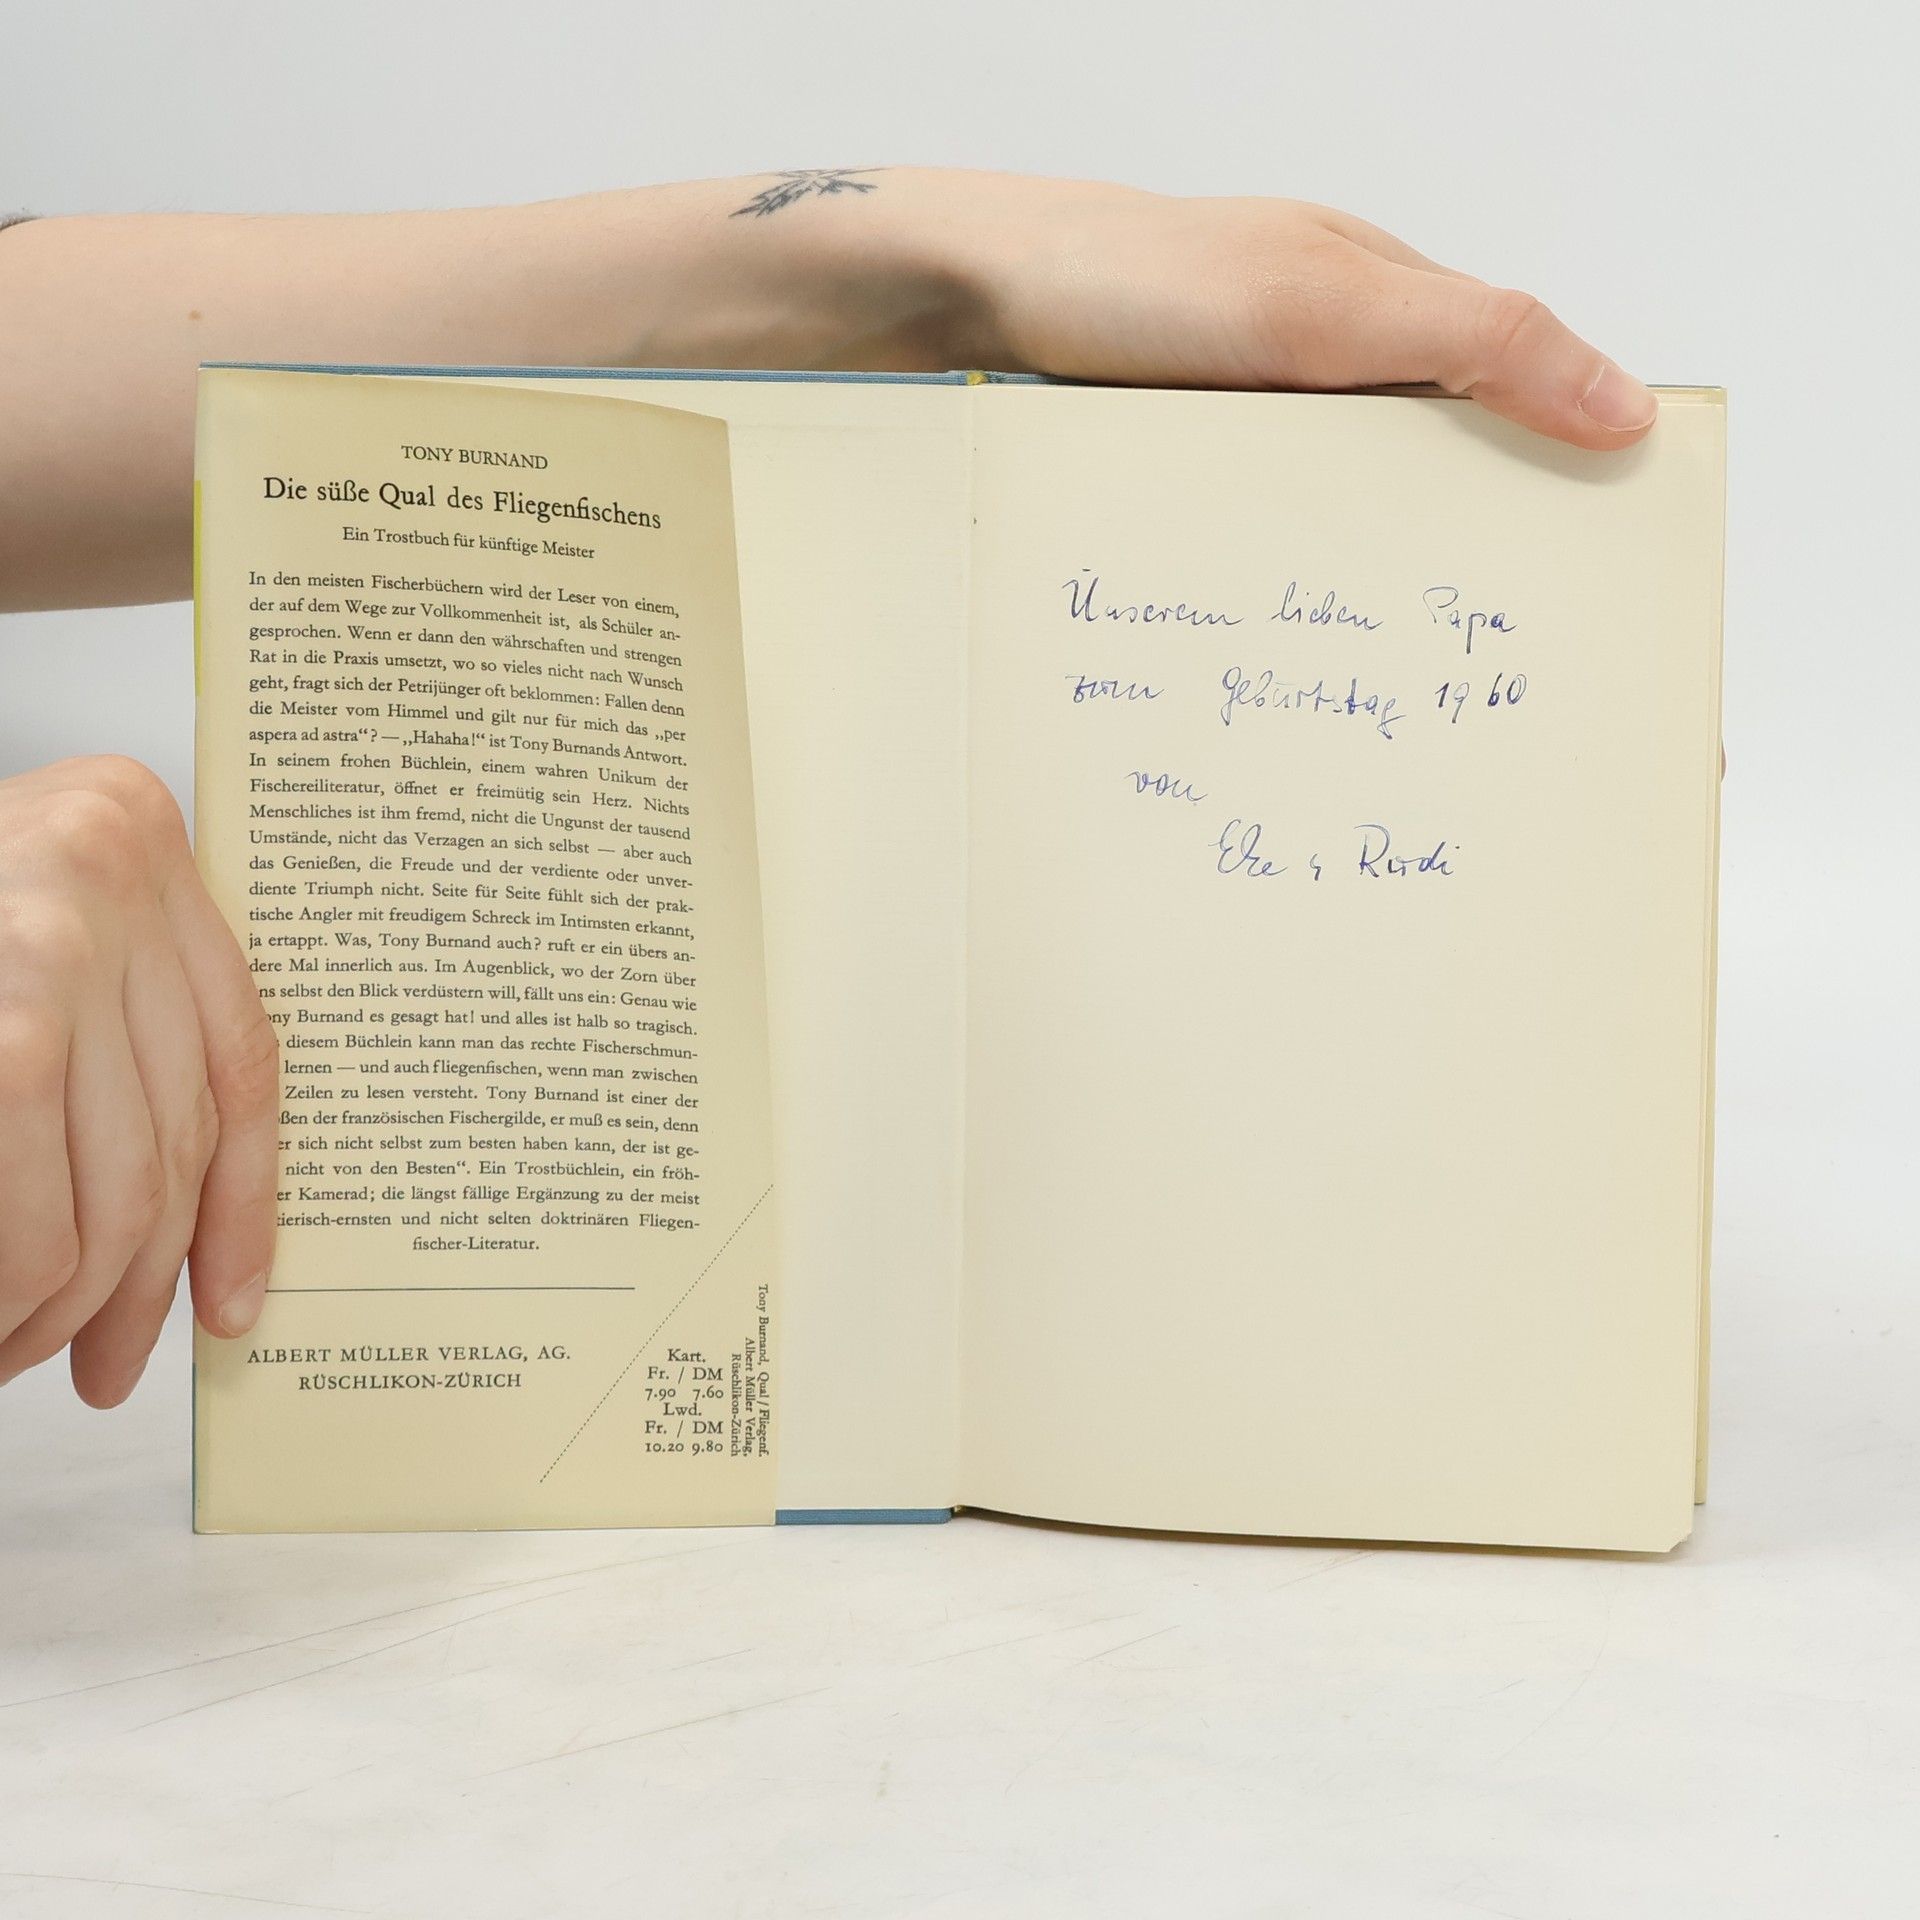 TONY BURNAND
Die süße Qual des Fliegenfischens
Ein Trostbuch für künftige Meister
In den meisten Fischerbüchern wird der Leser von einem,
der auf dem Wege zur Vollkommenheit ist, als Schüler an-
gesprochen. Wenn er dann den währschaften und strengen
Rat in die Praxis umsetzt, wo so vieles nicht nach Wunsch
geht, fragt sich der Petrijünger oft beklommen: Fallen denn
die Meister vom Himmel und gilt nur für mich das „per
aspera ad astra“? — „Hahaha!“ ist Tony Burnands Antwort.
In seinem frohen Büchlein, einem wahren Unikum der
Fischereiliteratur, öffnet er freimütig sein Herz. Nichts
Menschliches ist ihm fremd, nicht die Ungunst der tausend
Umstände, nicht das Verzagen an sich selbst — aber auch
das Genießen, die Freude und der verdiente oder unver-
diente Triumph nicht. Seite für Seite fühlt sich der prak-
tische Angler mit freudigem Schreck im Intimsten erkannt,
ja ertappt. Was, Tony Burnand auch? ruft er ein übers an-
dere Mal innerlich aus. Im Augenblick, wo der Zorn über
ns selbst den Blick verdüstern will, fällt uns ein: Genau wie
ony Burnand es gesagt hat! und alles ist halb so tragisch.
diesem Büchlein kann man das rechte Fischerschmun-
lernen — und auch fliegenfischen, wenn man zwischen
Zeilen zu lesen versteht. Tony Burnand ist einer der
ßen der französischen Fischergilde, er muß es sein, denn
er sich nicht selbst zum besten haben kann, der ist ge-
nicht von den Besten“. Ein Trostbüchlein, ein fröh-
er Kamerad; die längst fällige Ergänzung zu der meist
tierisch-ernsten und nicht selten doktrinären Fliegen-
fischer-Literatur.
ALBERT MÜLLER VERLAG, AG.
RÜSCHLIKON-ZÜRICH
Kart.
Fr. / DM
7.90 7.60
Lwd.
Fr. / DM
10.20 9.80
Tony Burnand, Qual / Fliegenf.
Albert Müller Verlag,
Rüschlikon-Zürich
Unserem lieben Papa
zum Geburtstag 1960
von
Rudi